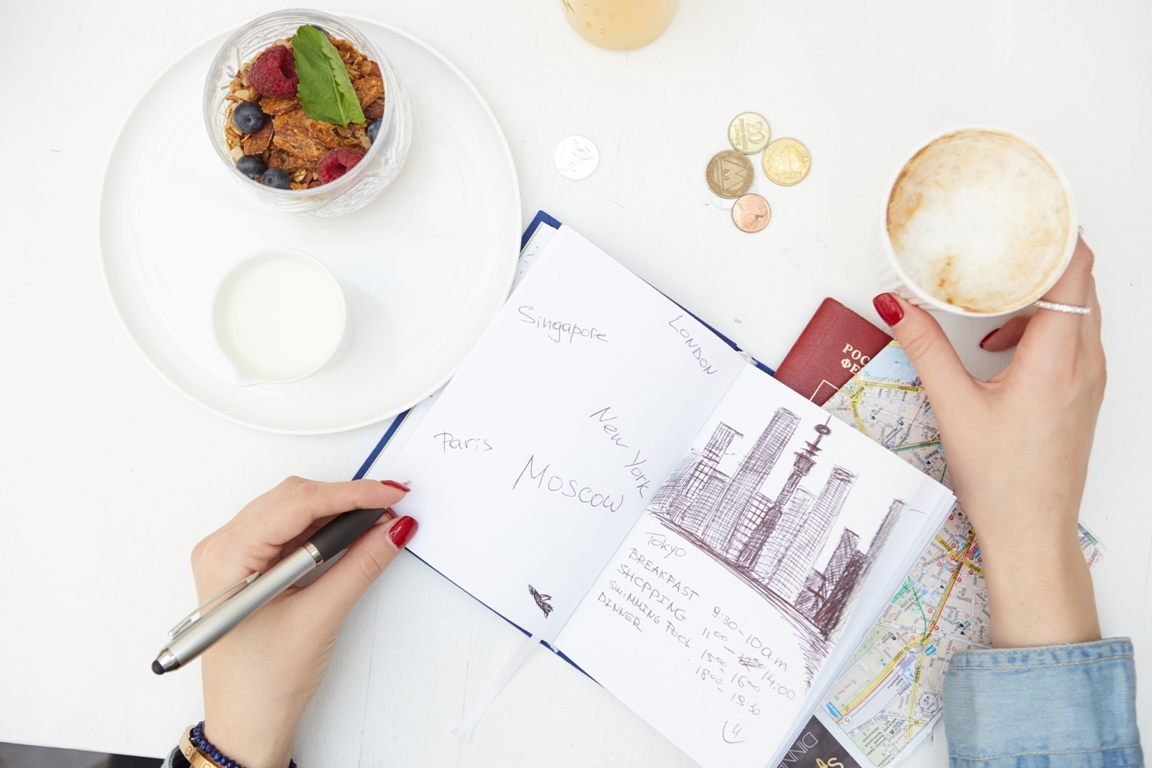 Singapore
LONDON
New York
Paris
Moscow
Tokyo
BREAKFAST 9:30-10am
SHOPPING 11:00 - 14:00
SWIMMING POOL 15:00 - 16:00
DINNER 18:00 - 19:30
РОС
ФЕ
20
DINN